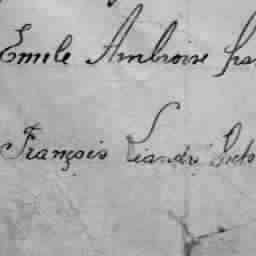 Emile Ambroise
François Liandri